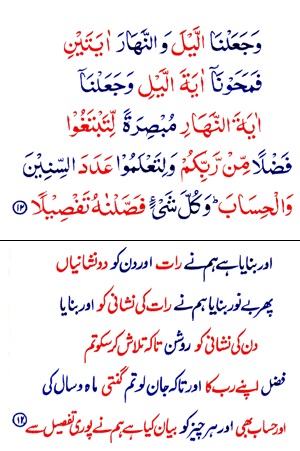 وَجَعَلْنَا الَّيْلَ وَالنَّهَارَ اٰيَتَيْنِ
فَمَحَوْنَاۤ اٰيَةَ الَّيْلِ وَجَعَلْنَاۤ
اٰيَةَ النَّهَارِ مُبْصِرَةً لِّتَبْتَغُوْا
فَضْلًا مِّنْ رَّبِّكُمْ وَلِتَعْلَمُوْا عَدَدَ السِّنِيْنَ
وَالْحِسَابَ ؕ وَكُلَّ شَیْءٍ فَصَّلْنٰهُ تَفْصِيْلًا ﴿۱۲﴾
اور بنایا ہے ہم نے رات اور دن کو دو نشانیاں
پھر بے نور بنایا ہم نے رات کی نشانی کو اور بنایا
دن کی نشانی کو روشن تاکہ تلاش کر سکو تم
فضل اپنے رب کا اور تاکہ جان لو تم گنتی ماہ و سال کی
اور حساب بھی اور ہر چیز کو بیان کیا ہے ہم نے پوری تفصیل سے ﴿۱۲﴾